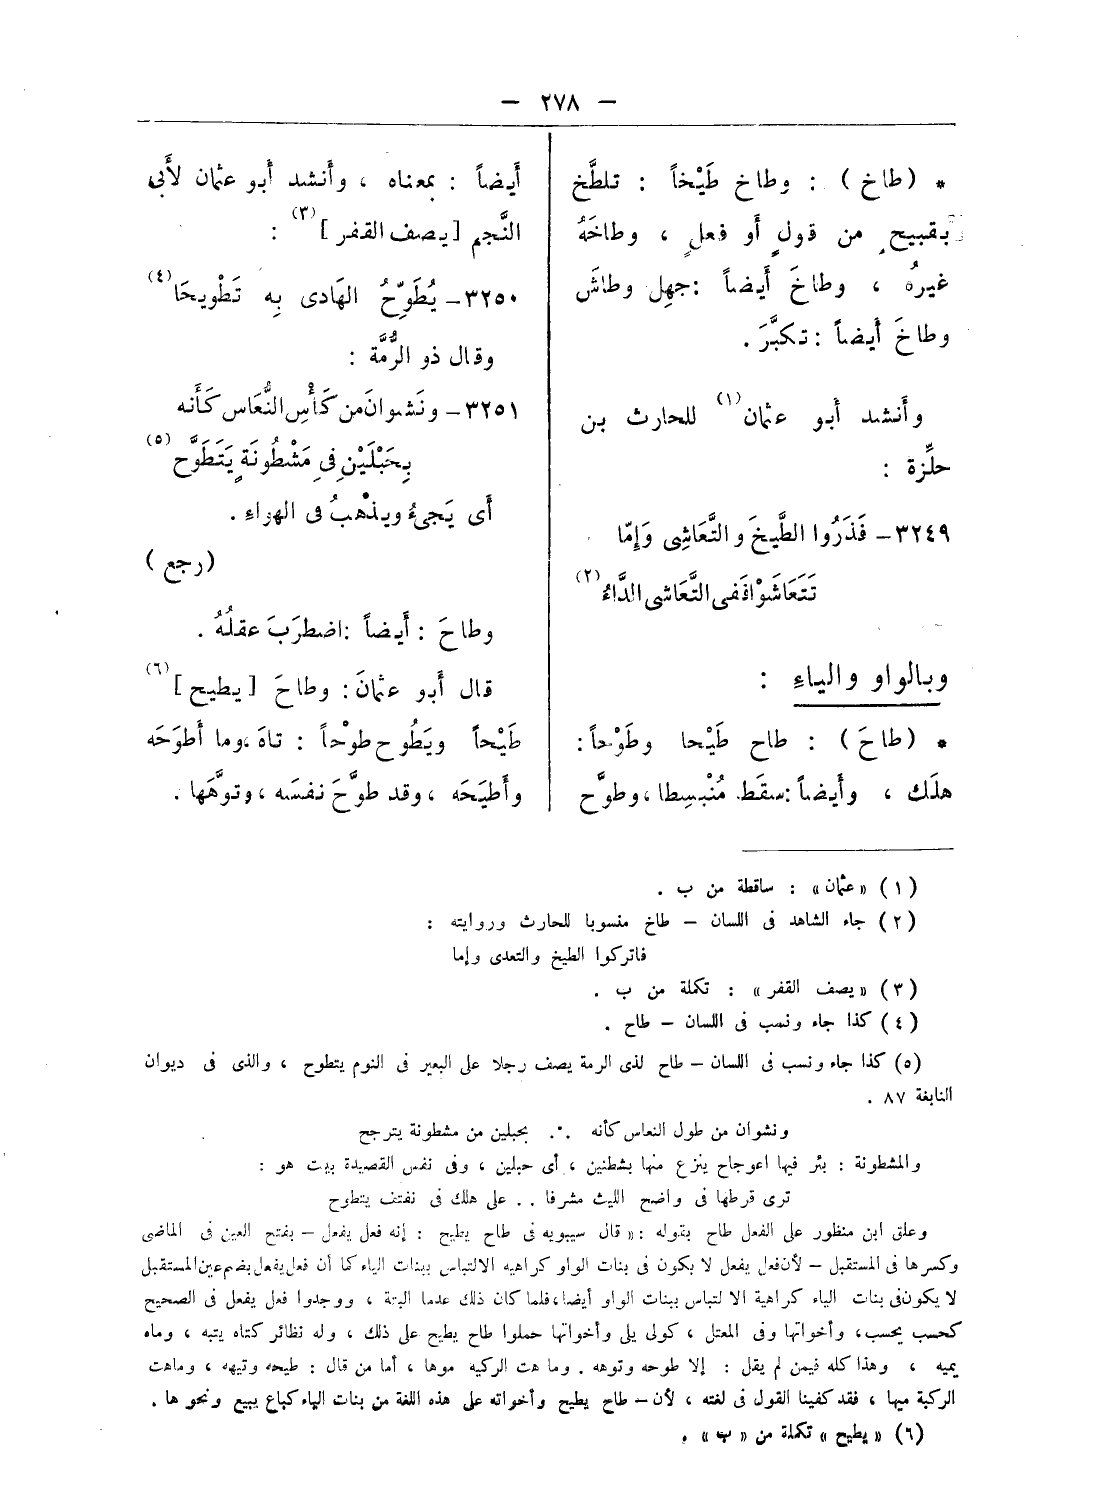 — ٢٧٨ —
* (طاخ) : وطاخ طَيْخاً : تلطَّخ
بقبيحٍ من قولٍ أو فعلٍ ، وطاخَهُ
غيرُه ، وطاخَ أيضاً : جهِل وطاشَ
وطاخَ أيضاً : تكبَّرَ .
وأنشد أبو عثمان (١) للحارث بن
حلِّزة :
٣٢٤٩ – فَذَرُوا الطَّيخَ والتَّعَاشِى وَإمّا
تَتَعَاشَوْا فَفى التَّعَاشى الدَّاءُ (٢)
وبالواو والياءِ :
* (طاحَ) : طاح طَيْحا وطَوْحاً :
هلَك ، وأيضاً : سقَط مُنْبسِطا ، وطوَّح
أَيضاً : بمعناه ، وأَنشد أبو عثمان لأَبى
النَّجم [يصف القفر] (٣) :
٣٢٥٠ – يُطَوِّحُ الهَادى بِه تَطْويحَا (٤)
وقال ذو الرُّمَّة :
٣٢٥١ – ونَشوانَ من كَأْسِ النُّعَاس كَأَنه
بِحَبْلَيْنِ فِى مَشْطُونَةٍ يَتَطَوَّح (٥)
أى يَجىءُ ويذْهبُ فى الهواءِ .
(رجع)
وطاحَ : أَيضاً : اضطرَبَ عقلُهُ .
قال أَبو عثمانَ : وطاحَ [يطيح] (٦)
طَيْحاً ويَطُوح طوْحاً : تاهَ ، وما أَطوَحَه
وأَطيَحَه ، وقد طوَّحَ نفسَه ، وتوَّهَها .
(١) «عثمان» : ساقطة من ب .
(٢) جاء الشاهد فى اللسان – طاخ منسوبا للحارث وروايته :
فاتركوا الطيخ والتعدى وإما
(٣) «يصف القفر» : تكملة من ب .
(٤) كذا جاء ونسب فى اللسان – طاح .
(٥) كذا جاء ونسب فى اللسان – طاح لذى الرمة يصف رجلا على البعير فى النوم يتطوح ، والذى فى ديوان
النابغة ٨٧ .
ونشوان من طول النعاس كأنه ∴ بحبلين من مشطونة يترجح
والمشطونة : بئر فيها اعوجاج ينزع منها بشطنين ، أى حبلين ، وفى نفس القصيدة بيت هو :
ترى قرطها فى واضح الليث مشرفا .. على هلك فى نفنف يتطوح
وعلق ابن منظور على الفعل طاح بقوله : «قال سيبويه فى طاح يطيح : إنه فعل يفعل – بفتح العين فى الماضى
وكسرها فى المستقبل – لأن فعل يفعل لا يكون فى بنات الواو كراهيه الالتباس ببنات الياء كما أن فعل يفعل بضم عين المستقبل
لا يكون فى بنات الياء كراهية الالتباس ببنات الواو أيضا ، فلما كان ذلك عدما البتة ، ووجدوا فعل يفعل فى الصحيح
كحسب يحسب ، وأخواتها وفى المعتل ، كولى يلى وأخواتها حملوا طاح يطيح على ذلك ، وله نظائر كتاه يتيه ، وماه
يميه ، وهذا كله فيمن لم يقل : إلا طوحه وتوهه . وماهت الركيه موها ، أما من قال : طيحه وتيهه ، وماهت
الركية ميها ، فقد كفينا القول فى لغته ، لأن – طاح يطيح وأخواته على هذه اللغة من بنات الياء كباع يبيع ونحوها .
(٦) «يطيح» تكملة من «ب» .